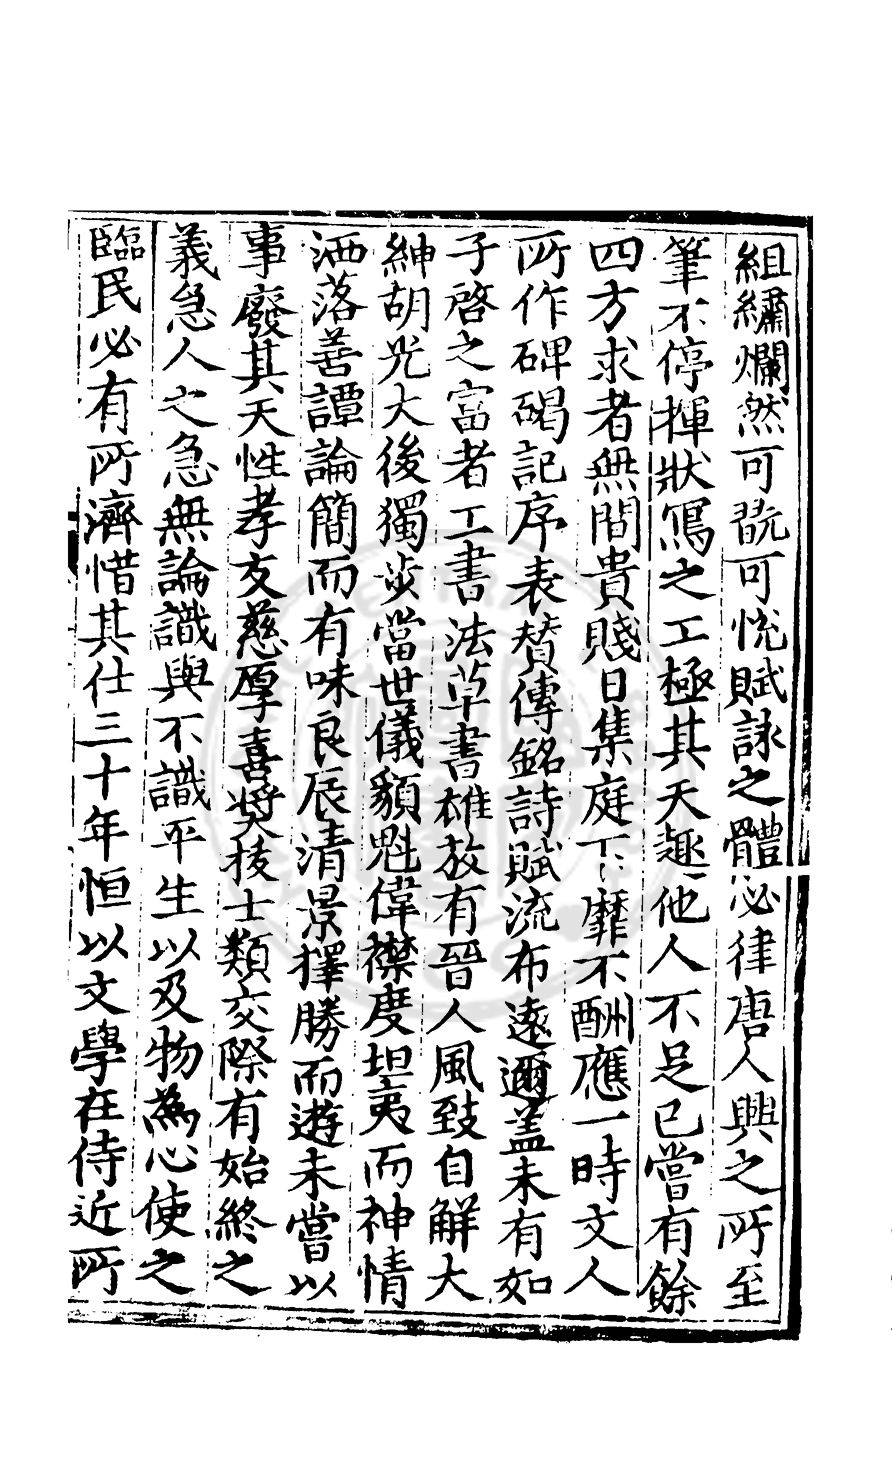 組繡爛然可翫可悅賦詠之體必律唐人興之所至
筆不停揮狀寫之工極其天趣他人不足已嘗有餘
四方求者無間貴賤日集庭下靡不酬應一時文人
所作碑碣記序表贊傳銘詩賦流布遠邇盖未有如
子啓之富者工書法草書雄放有晉人風致自解大
紳胡光大後獨步當世儀貌魁偉襟度坦夷而神情
洒落善譚論簡而有味良辰清景擇勝而遊未嘗以
事廢其天性孝友慈厚喜奬掖士類交際有始終之
義急人之急無論識與不識平生以及物為心使之
臨民必有所濟惜其仕三十年恒以文學在侍近所